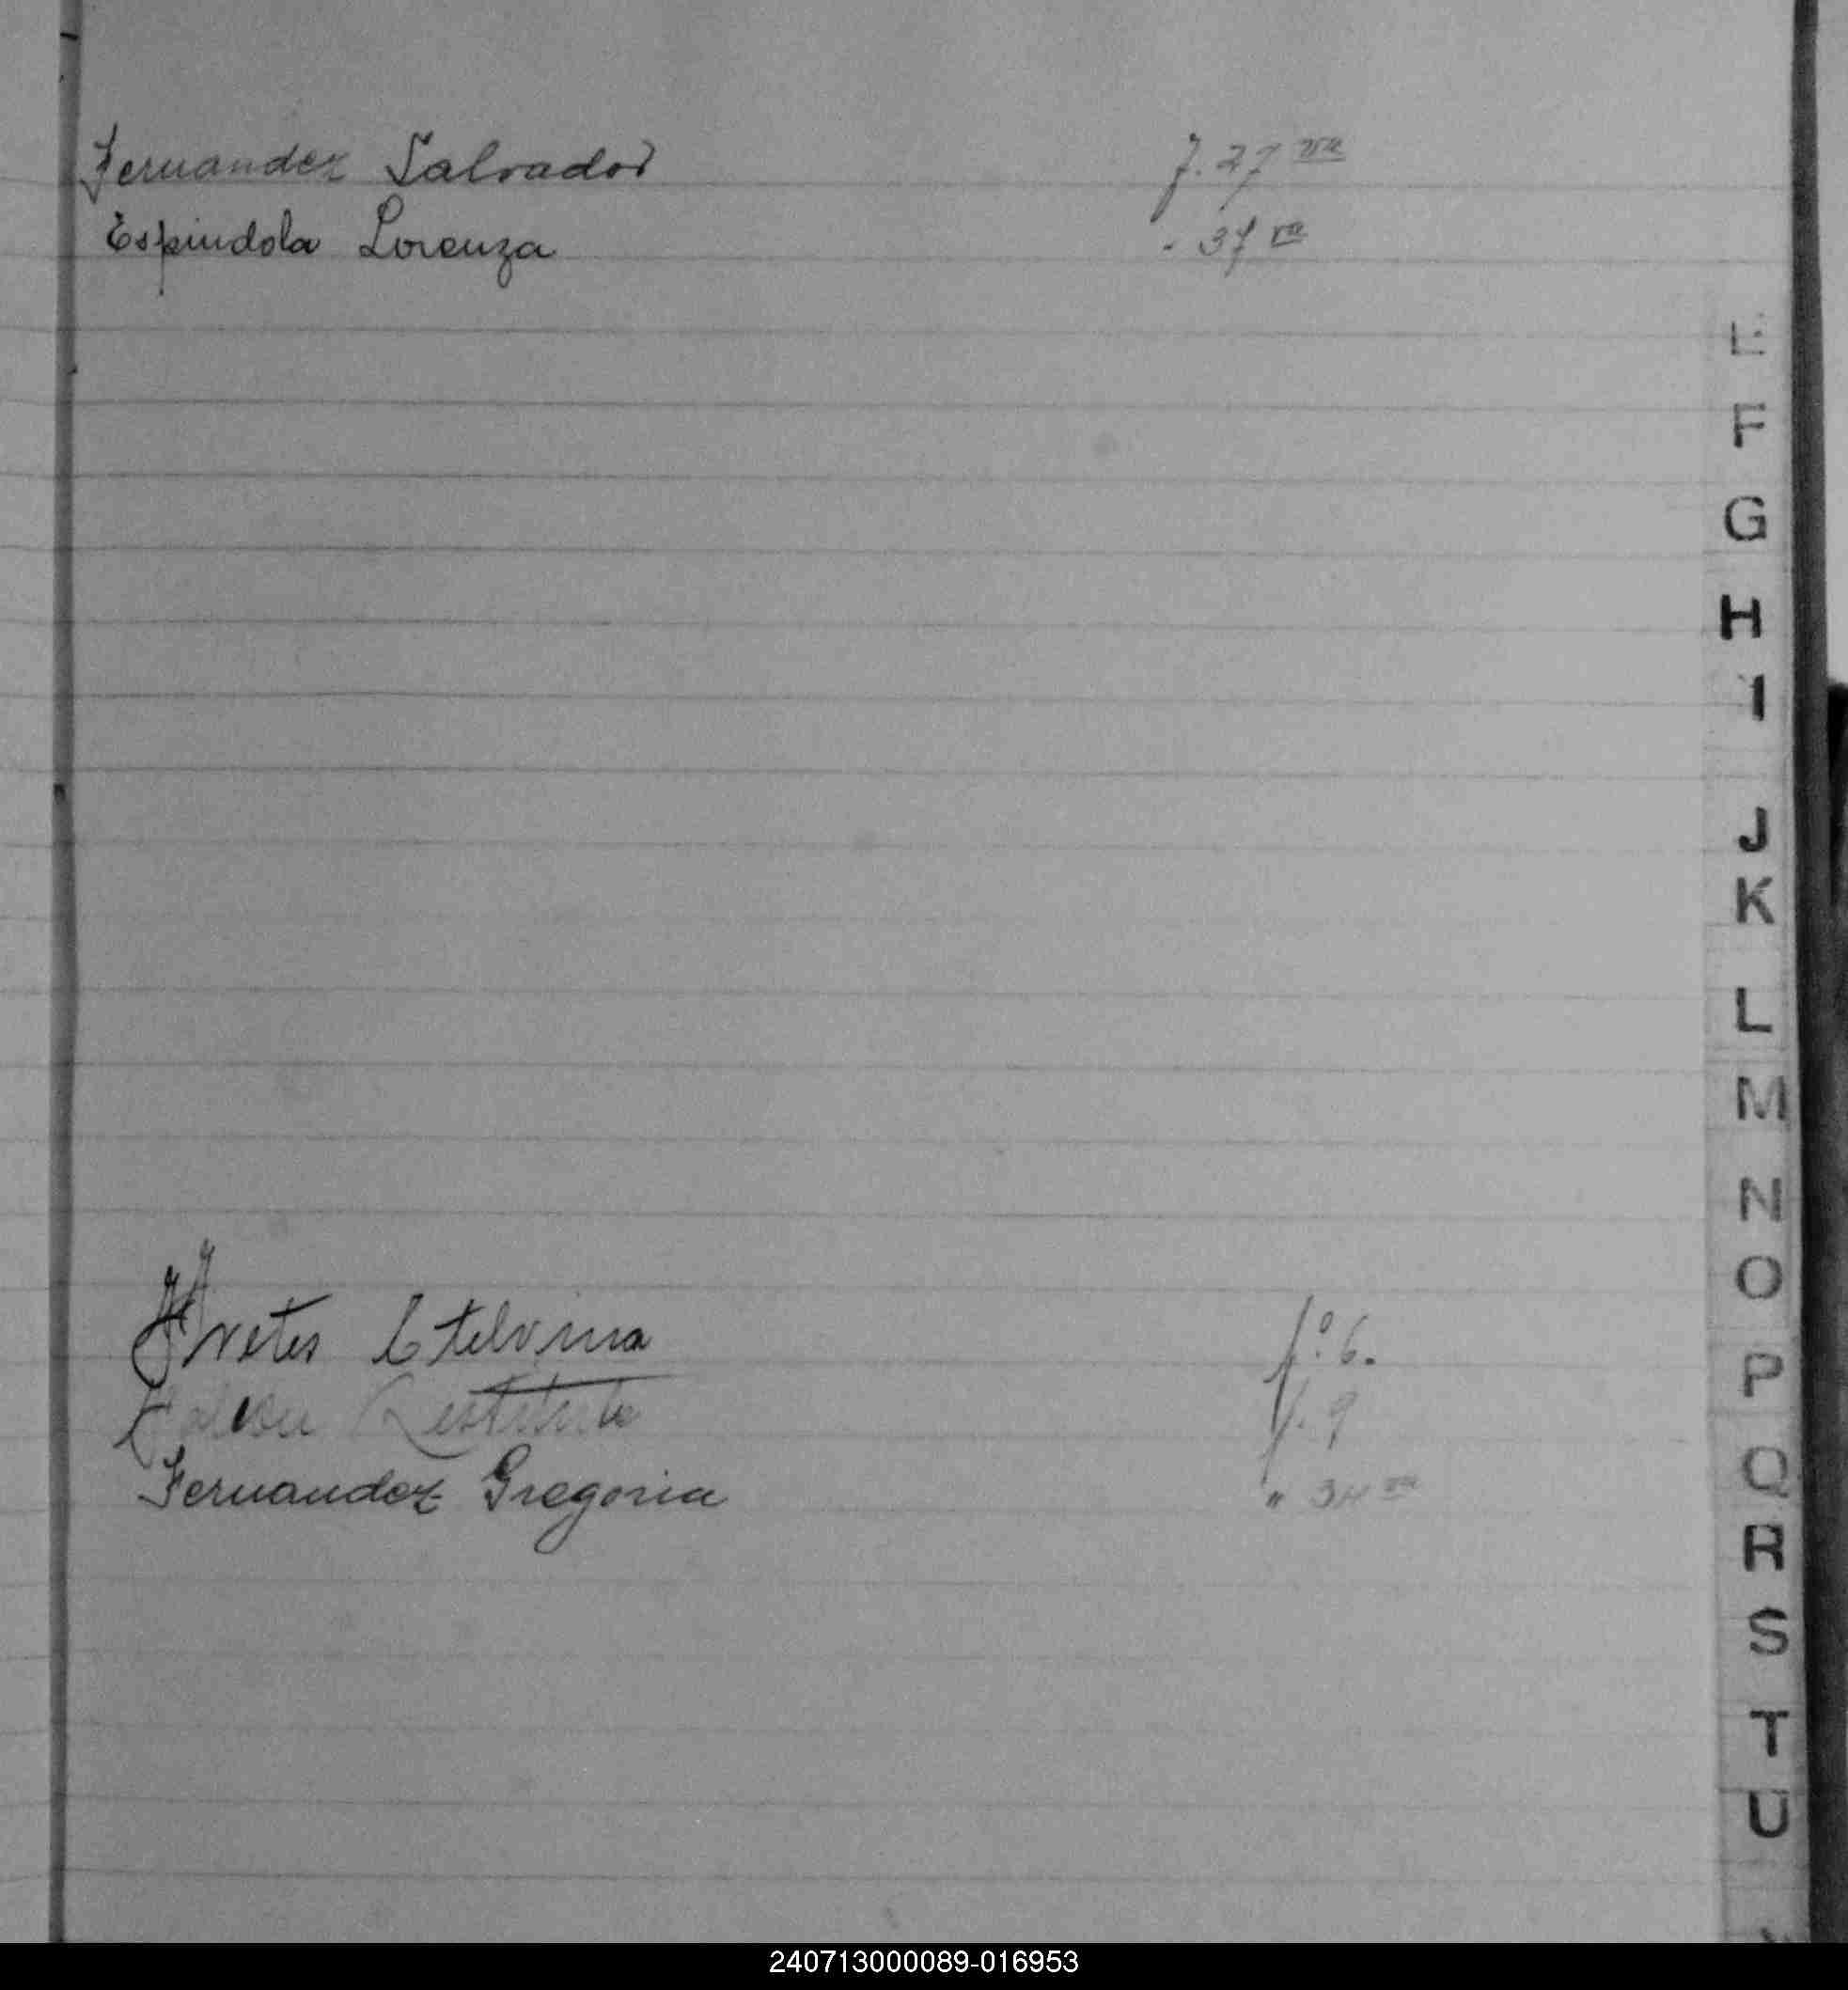 Fernandez Salvador f. 27 vta
Espindola Lorenza " 37 vta
E
F
G
H
I
J
K
L
M
N
O
P
Q
R
S
T
U
Etelvina fº 6.
Restituto f. 9
Fernandez Gregoria " 34 vta
240713000089-016953